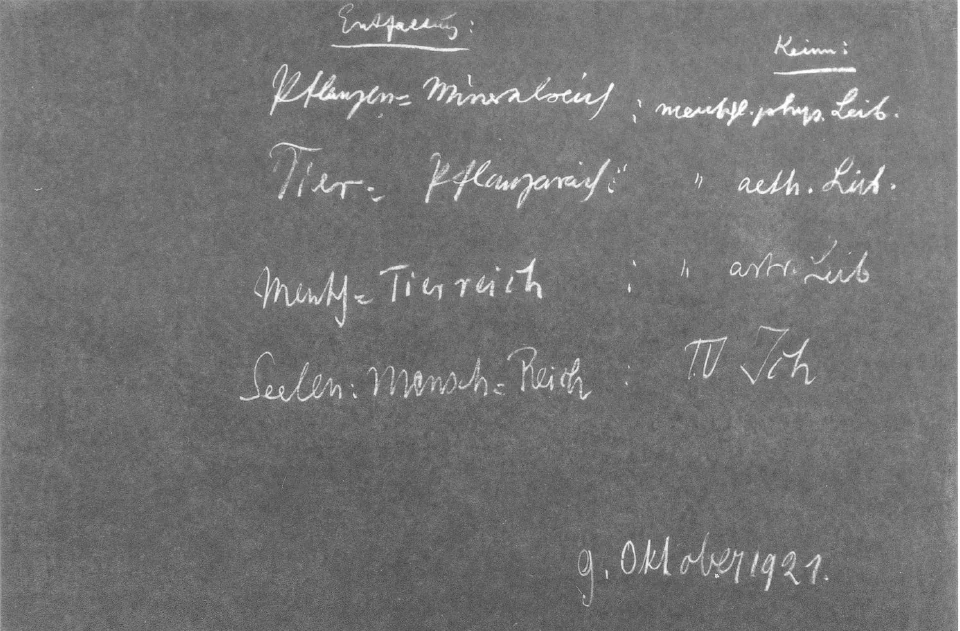 Entfaltung:
Keim:
Pflanzen= Mineralreich : menschl. phys. Leib.
Tier= Pflanzenreich : " aeth. Leib.
Mensch= Tierreich : " astr. Leib
Seelen: Mensch= Reich : Ich
9. Oktober 1921.